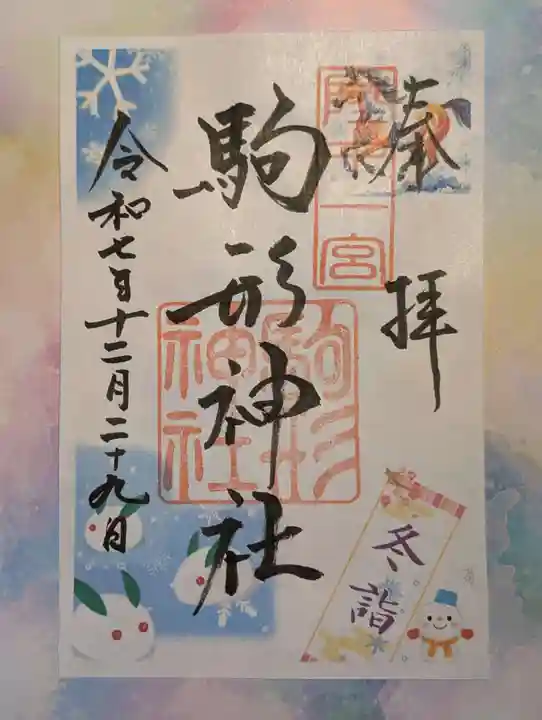 奉拝
陸中一宮
駒形神社
駒形神社
令和七年十二月二十九日
冬詣